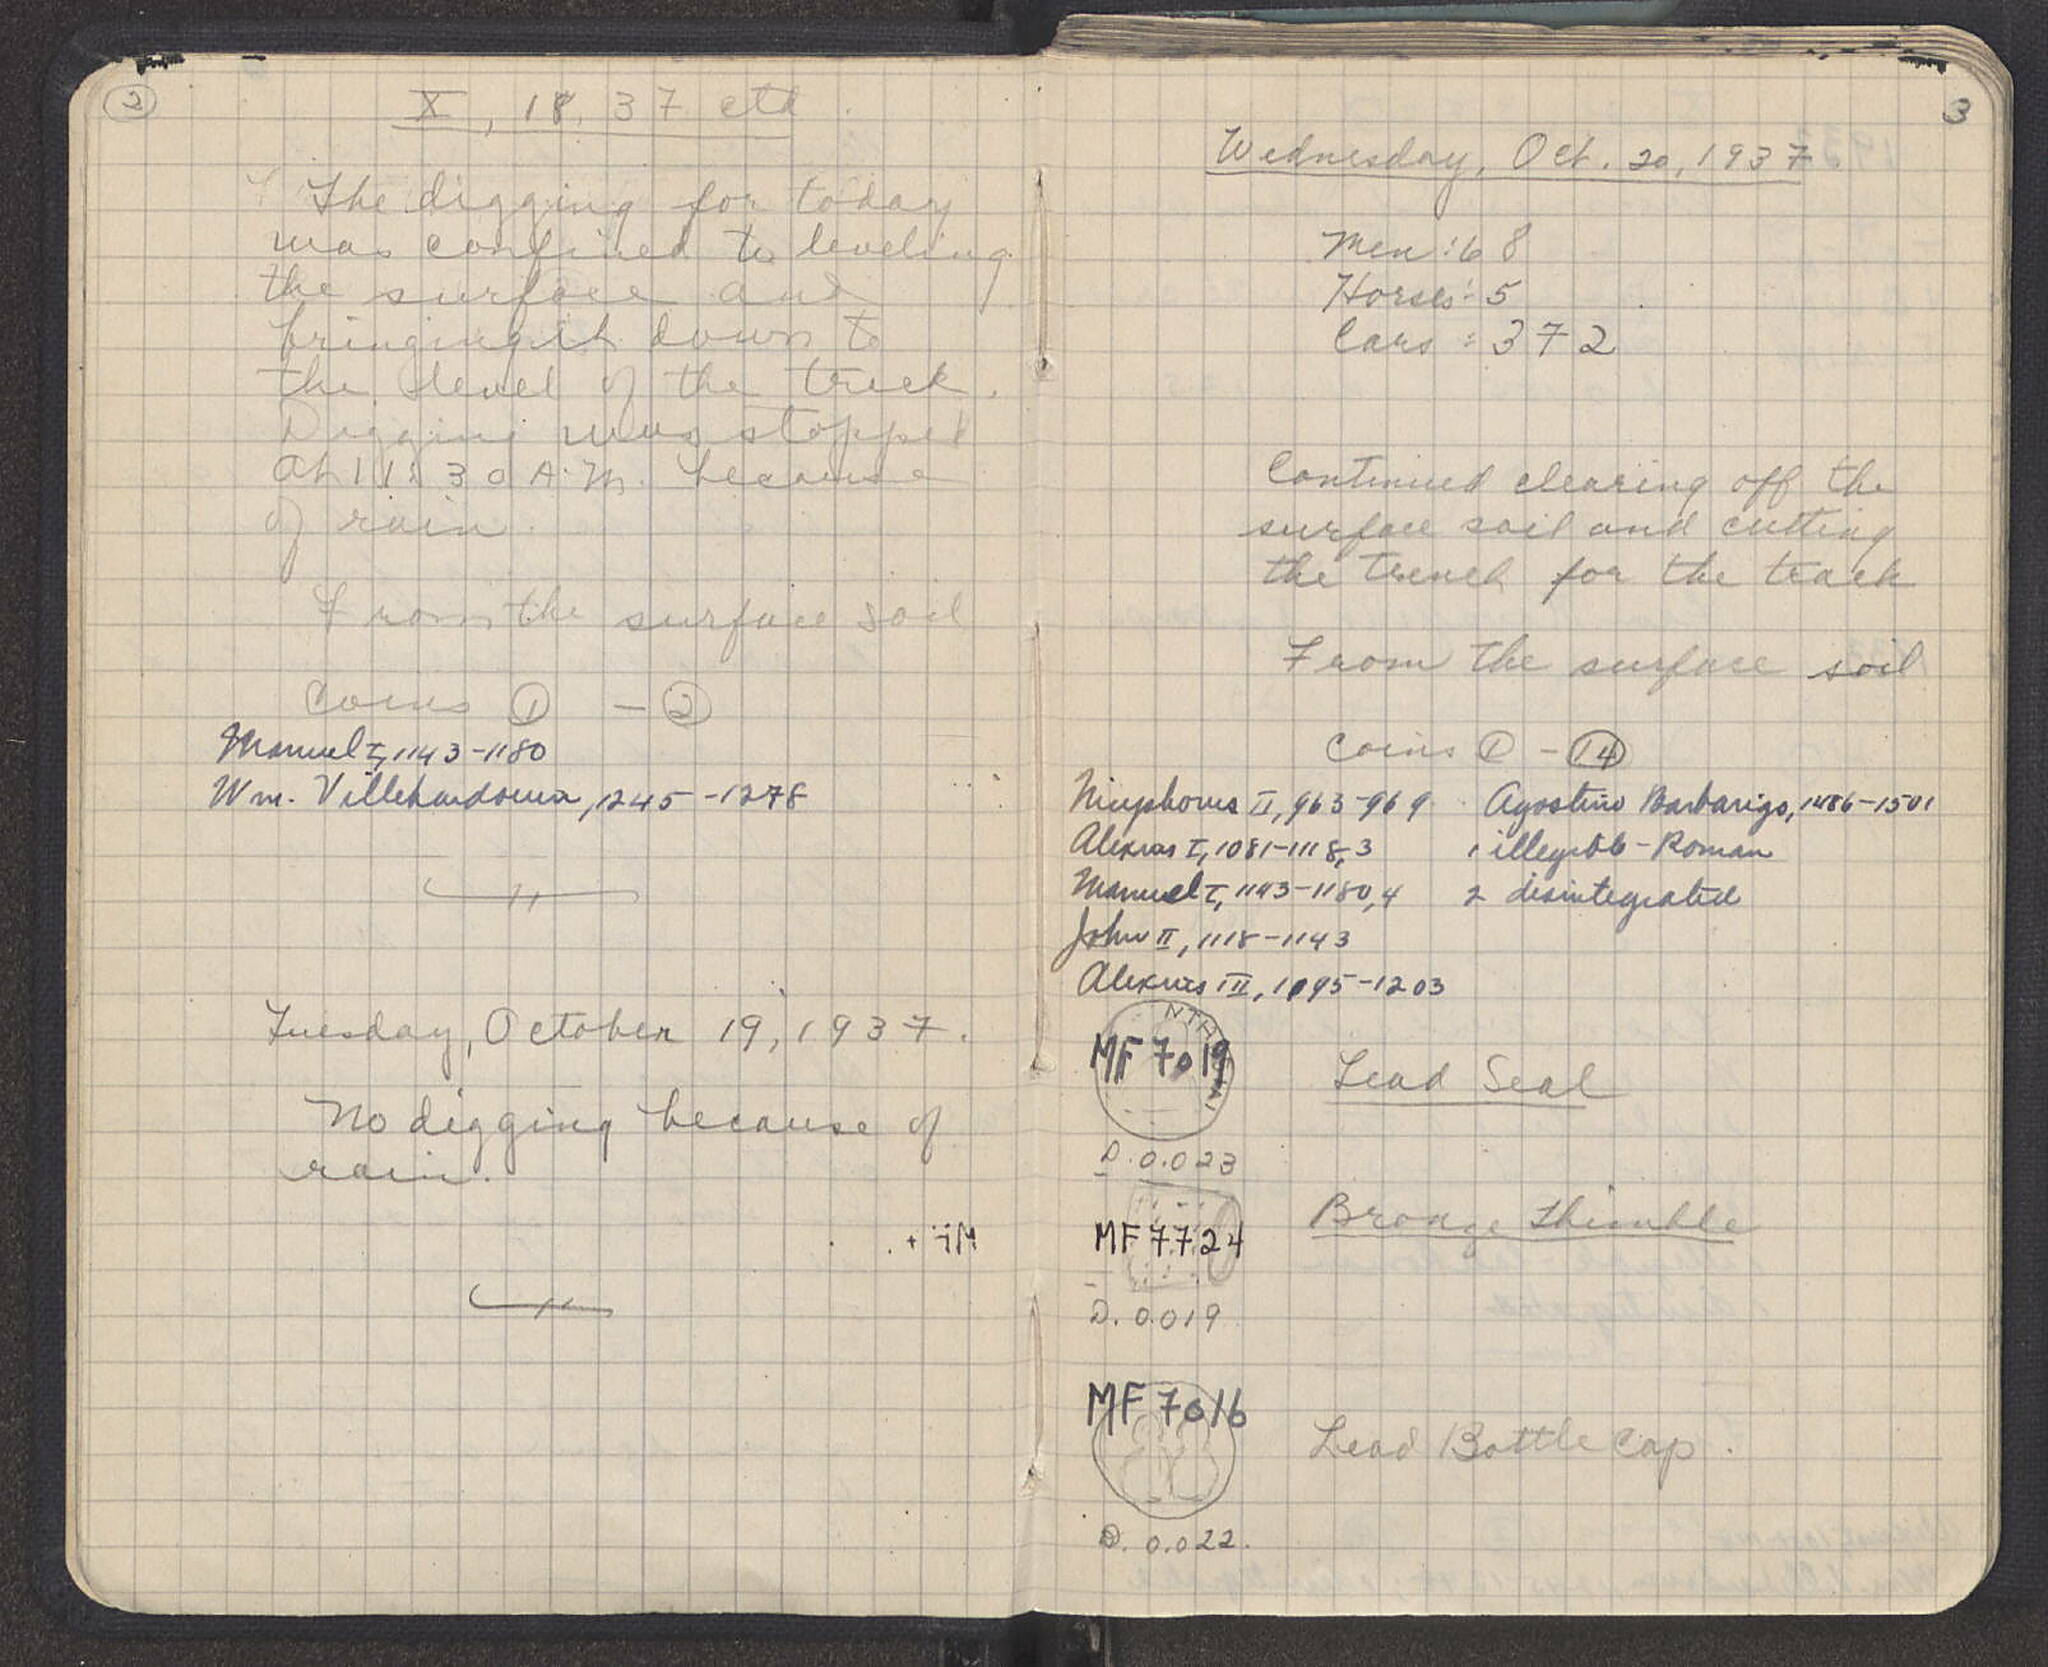 2
X, 18, 37 ctd.
The digging for today
was confined to leveling
the surface and
bringing it down to
the level of the track.
Digging was stopped
at 11:30 A.M. because
of rain.
From the surface soil
Coins 1 - 2
Manuel I, 1143-1180
Wm. Villehardouin, 1245-1278
Tuesday, October 19, 1937.
No digging because of
rain.
3
Wednesday, Oct. 20, 1937.
Men: 68
Horses: 5
Cars: 372
Continued clearing off the
surface soil and cutting
the trench for the track
From the surface soil
Coins 1 - 14
Nicephorus II, 963-969
Alexius I, 1081-1118, 3
Manuel I, 1143-1180, 4
John II, 1118-1143
Alexius III, 1095-1203
Agostino Barbarigo, 1486-1501
1 illegible - Roman
2 disintegrated
MF 7019
Lead Seal
D. 0.023
MF 7724
Bronze Thimble
D. 0.019
MF 7016
Lead Bottle Cap.
D. 0.022.